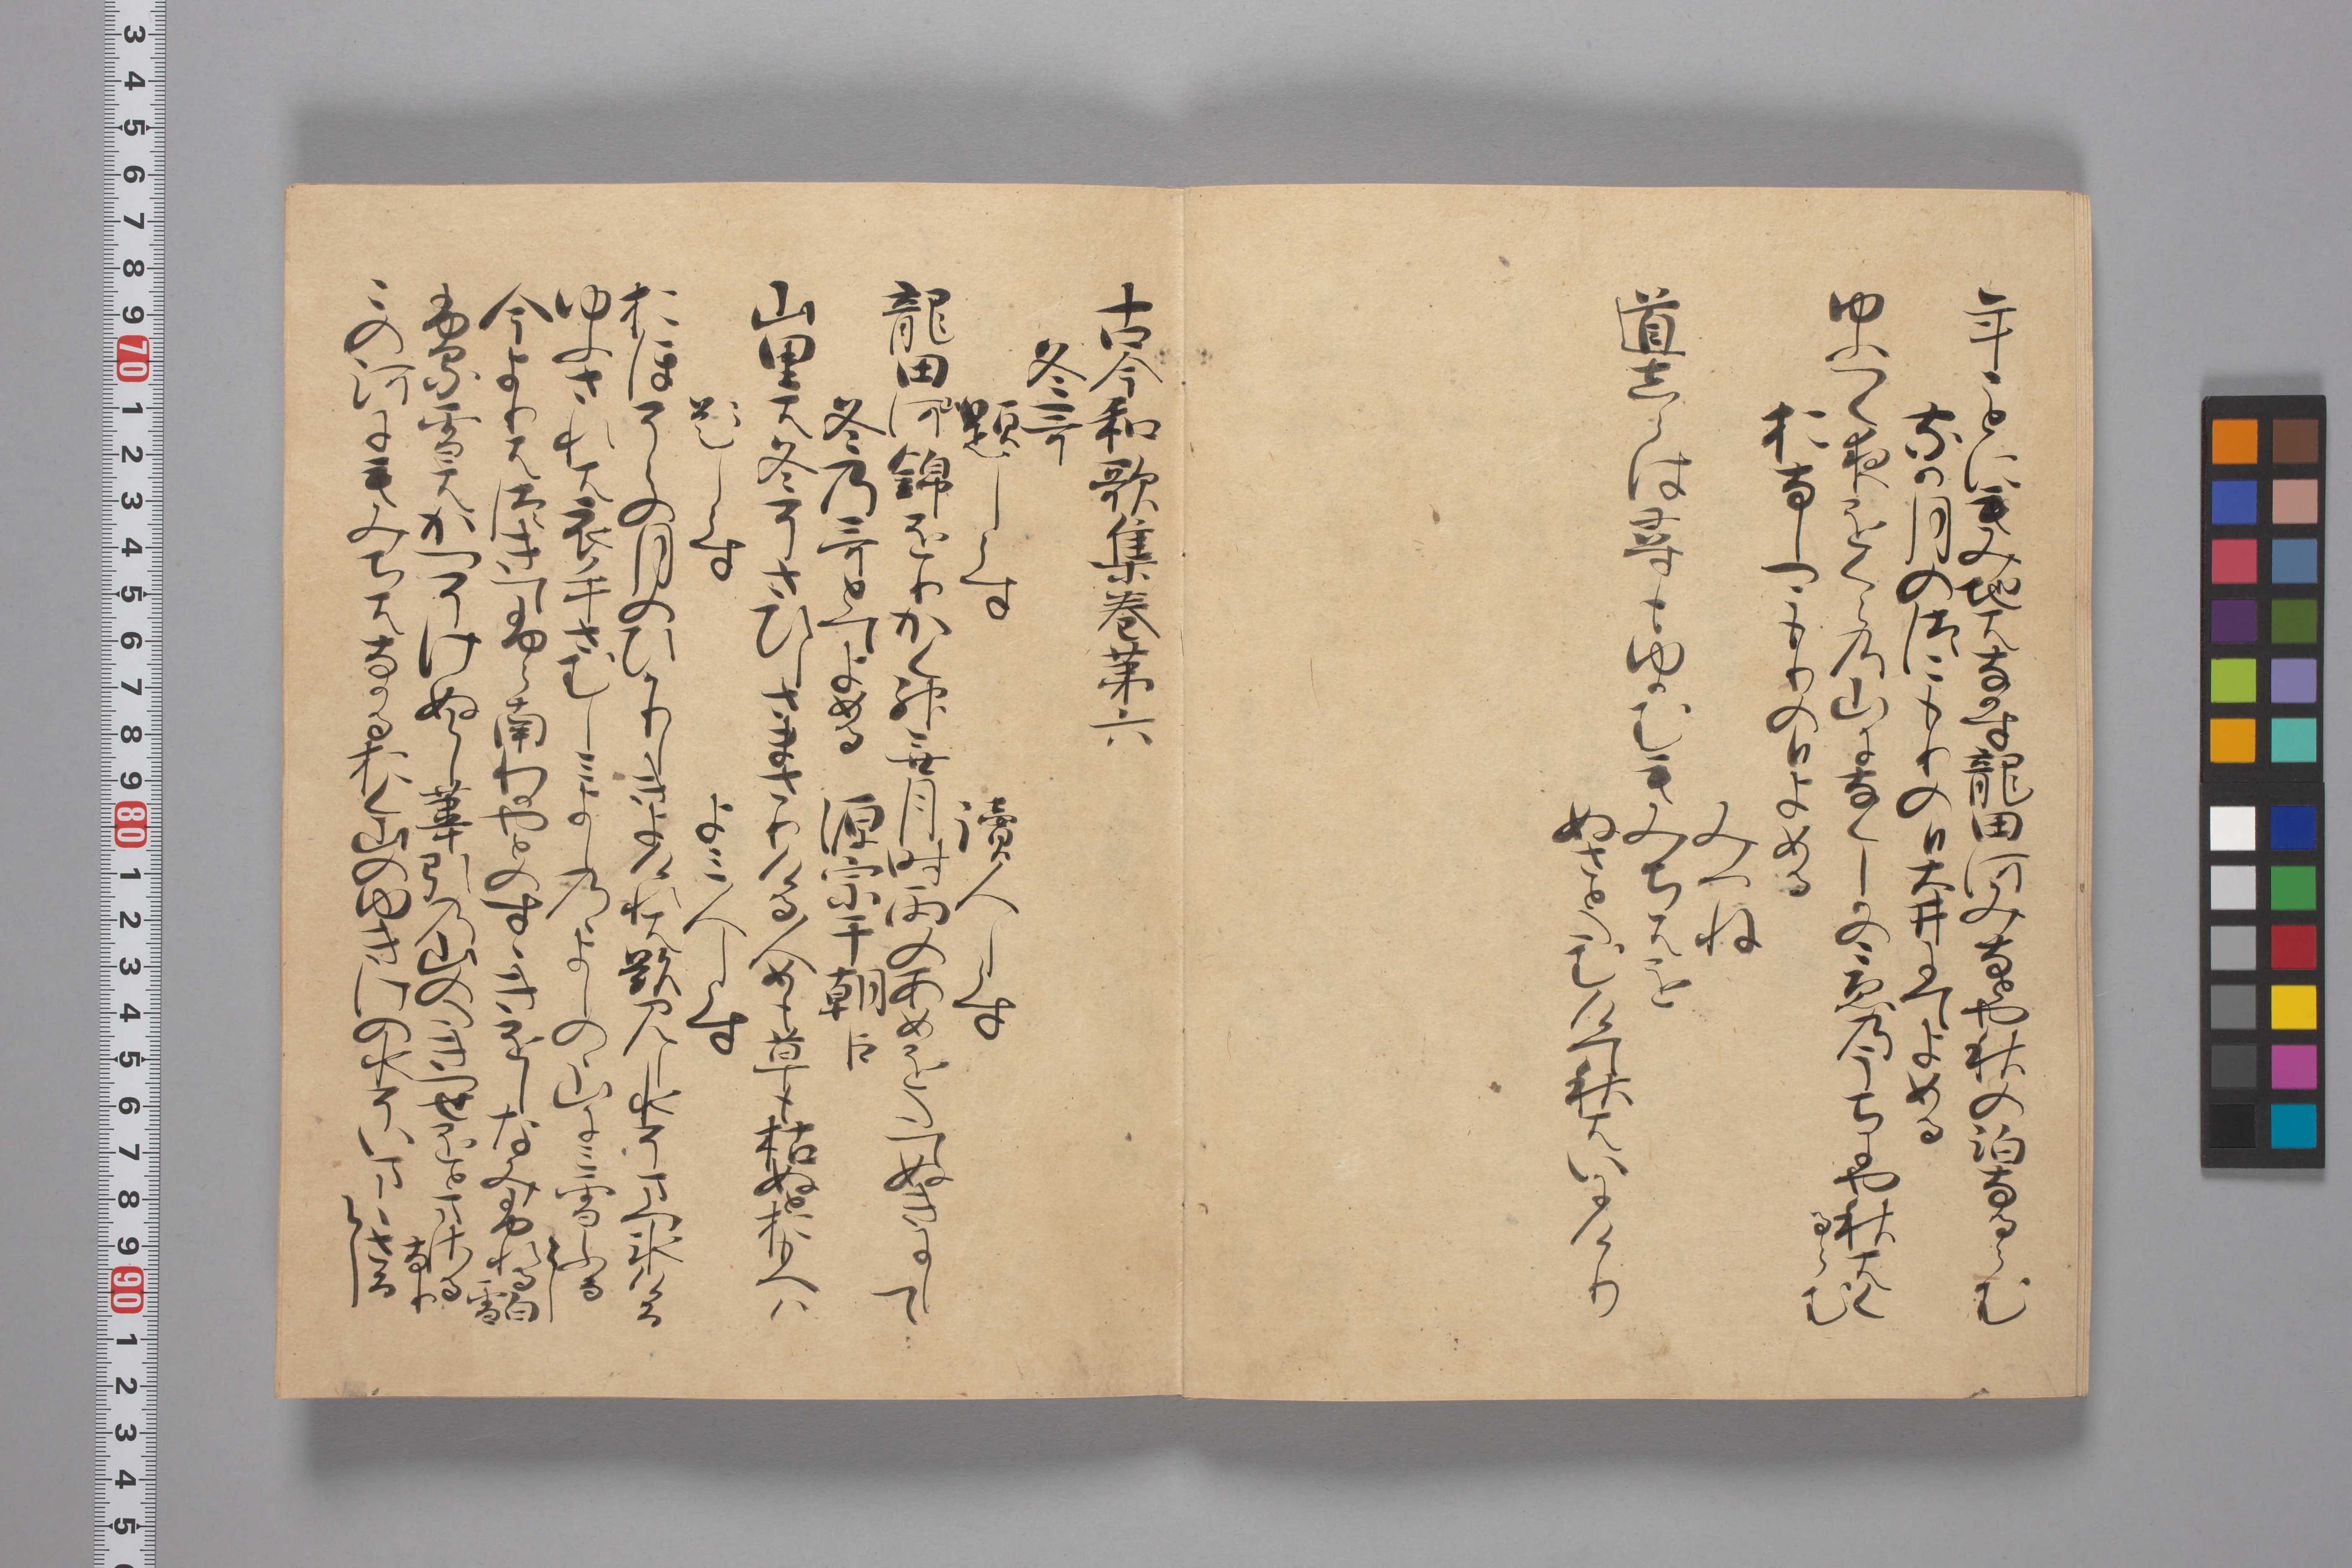 年ことにもみち葉なかす龍田河みなとや秋の泊なるらむ
なか月の津こもりの日大井にてよめる
ゆふつく夜をくらの山になくしかのこゑのうちにや秋はくるらむ
おなしつこもりの日よめる
みつね
道しらは尋もゆかむもみちはを
ぬさとたむけて秋はいにけり
古今和歌集巻第六
冬哥
題しらす
讀人しらす
龍田河錦をりかく神無月しくれの雨をたてぬきにして
冬乃哥とてよめる
源宗于朝臣
山里は冬そさひしさまさりける人めも草もかれぬと思へは
題しらす
よみ人しらす
おほそらの月のひかりしきよけれは影みし水そまつこほりける
ゆふされは衣手さむしみよしののよしのの山にみ雪ふるらし
今よりはつきてふらなむわかやとのすすきをしなみふれる白雪
ふる雪はかつそけぬらし足引の山のたきつせおとまさるなり
この河にもみちはなかるおく山の雪けの水そいままさるらし